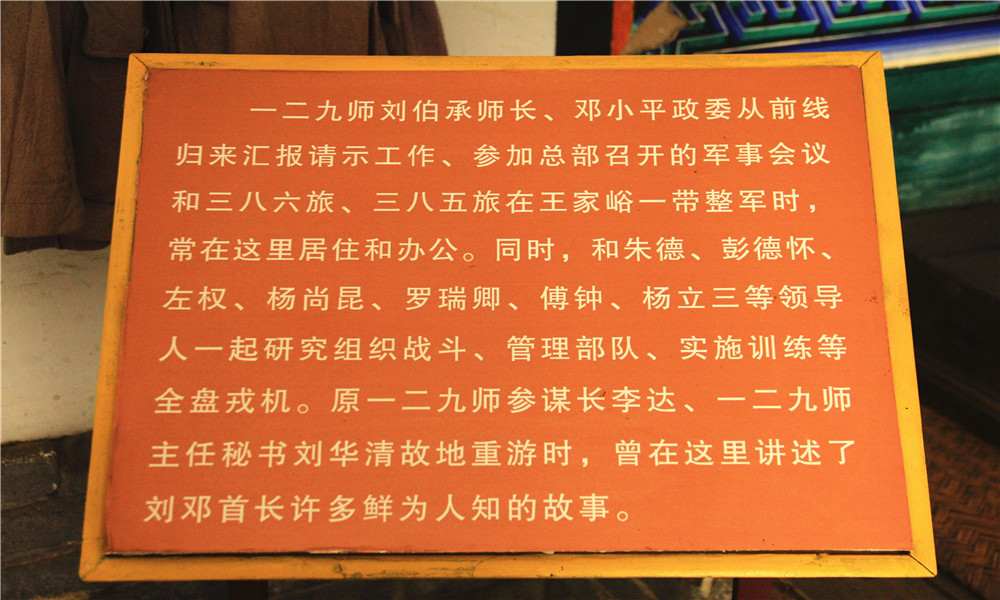 一二九师刘伯承师长、邓小平政委从前线
归来汇报请示工作、参加总部召开的军事会议
和三八六旅、三八五旅在王家峪一带整军时，
常在这里居住和办公。同时，和朱德、彭德怀、
左权、杨尚昆、罗瑞卿、傅钟、杨立三等领导
人一起研究组织战斗、管理部队、实施训练等
全盘戎机。原一二九师参谋长李达、一二九师
主任秘书刘华清故地重游时，曾在这里讲述了
刘邓首长许多鲜为人知的故事。